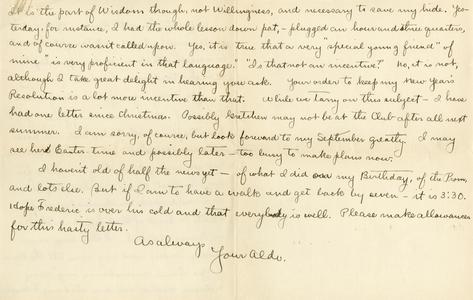 It is the part of Wisdom though, not Willingness, and necessary to save my hide. Yes-
terday, for instance, I had the whole lesson down pat, - plugged an hour and three quarters,
and of course wasn't called upon. Yes, it is true that a very special young friend" of
mine "is very proficient in that language." "Is that not an incentive?" No, it is not,
although I take great delight in hearing you ask. Your order to keep my New Year's
Resolution is a lot more incentive than that. While we tarry on this subject - I have
had one letter since Christmas. Possibly Gretchen may not be at the Club after all next
summer. I am sorry, of course, but look forward to my September greatly. I may
see her Easter time and possibly later - too busy to make plans now.
I haven't told half the news yet - of what I did on my Birthday, of the Prom
and lots else. But if I am to have a walk and get back by seven - it is 5:30.
I hope Frederic is over his cold and that everybody is well. Please make allowances
for this hasty letter.
As always
Your Aldo.